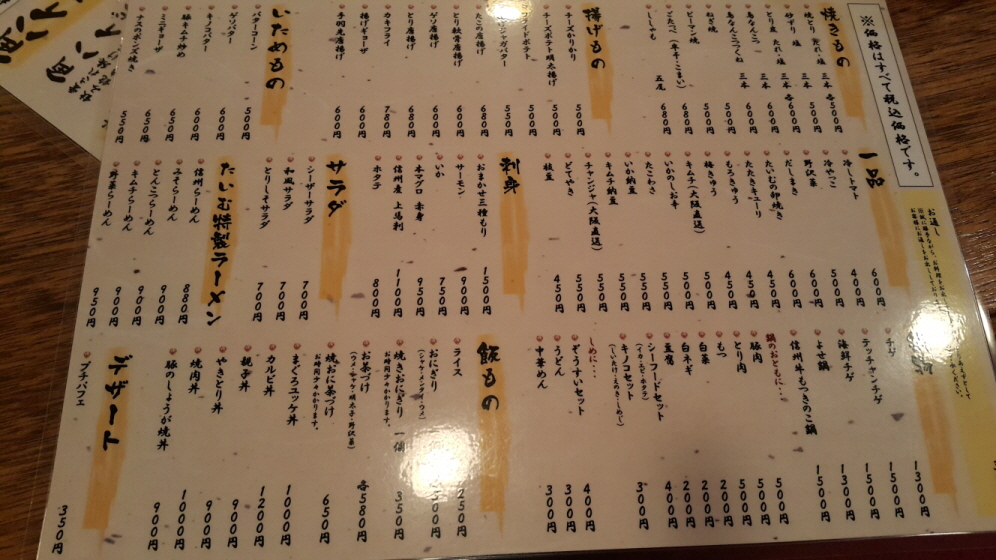 ※価格はすべて税込価格です。
焼きもの
焼とり たれ・塩 三本 各500円
砂ずり 塩 三本 500円
とり皮 たれ・塩 三本 各600円
鳥なんこつ 三本 600円
鳥なんこつつくね 三本 500円
ねぎ焼 500円
ピーマン焼 500円
ごたっぺ(辛子・こまい) 680円
ししゃも 五尾 680円
揚げもの
チーズかりかり 500円
チーズポテト明太揚げ 500円
フライドポテト 500円
ジャガバター 550円
たこの唐揚げ 680円
とり軟骨唐揚げ 600円
ゲソ唐揚げ 680円
とり唐揚げ 680円
カキフライ 780円
揚げギョーザ 600円
手羽先唐揚げ 600円
いためもの
バターコーン 500円
ゲソバター 600円
キノコバター 600円
豚キムチ炒め 650円
ミニギョーザ 650円
ナスのポンズ焼き 550円
一品
冷しトマト 600円
冷やっこ 400円
野沢菜 500円
だしまき 600円
たいむの卵焼き 600円
たたきキューリ 450円
もろきゅう 450円
梅きゅう 450円
キムチ(大阪直送) 550円
いかのしお辛 550円
たこわさ 550円
いか納豆 550円
キムチ納豆 550円
チャンジャ(大阪直送) 550円
どてやき 550円
枝豆 450円
刺身
おまかせ三種もり 1500円
サーモン 900円
いか 750円
本マグロ 赤身 950円
信州産 上馬刺 1100円
ホタテ 800円
サラダ
シーザーサラダ 700円
和風サラダ 700円
とりしそサラダ 700円
たいむ特製ラーメン
信州らーめん 880円
みそらーめん 900円
とんこつらーめん 900円
キムチらーめん 900円
野菜らーめん 950円
お通し
チゲ 1300円
テッチャンチゲ 1500円
海鮮チゲ 1300円
よせ鍋 1500円
信州牛もつきのこ鍋
鍋のおともに…
豚肉 500円
とり肉 500円
もつ 500円
白菜 200円
白ネギ 200円
豆腐 200円
シーフードセット
(イカ・エビ・ホタテ) 400円
キノコセット
(しいたけ・えのき・しめじ) 300円
しめに…
ぞうすいセット 400円
うどん 300円
中華めん 300円
飯もの
ライス 250円
おにぎり
(シャケ・メンタイ・ウメ) 各250円
焼きおにぎり 一個 350円
お時間少々かかります。
お茶づけ 各580円
(ウメ・シャケ・明太子・野沢菜)
焼おに茶づけ 650円
お時間少々かかります。
まぐろユッケ丼 1000円
カルビ丼 1200円
親子丼 900円
やきとり丼 900円
焼肉丼 1000円
豚のしょうが焼丼 900円
デザート
プチパフェ 350円